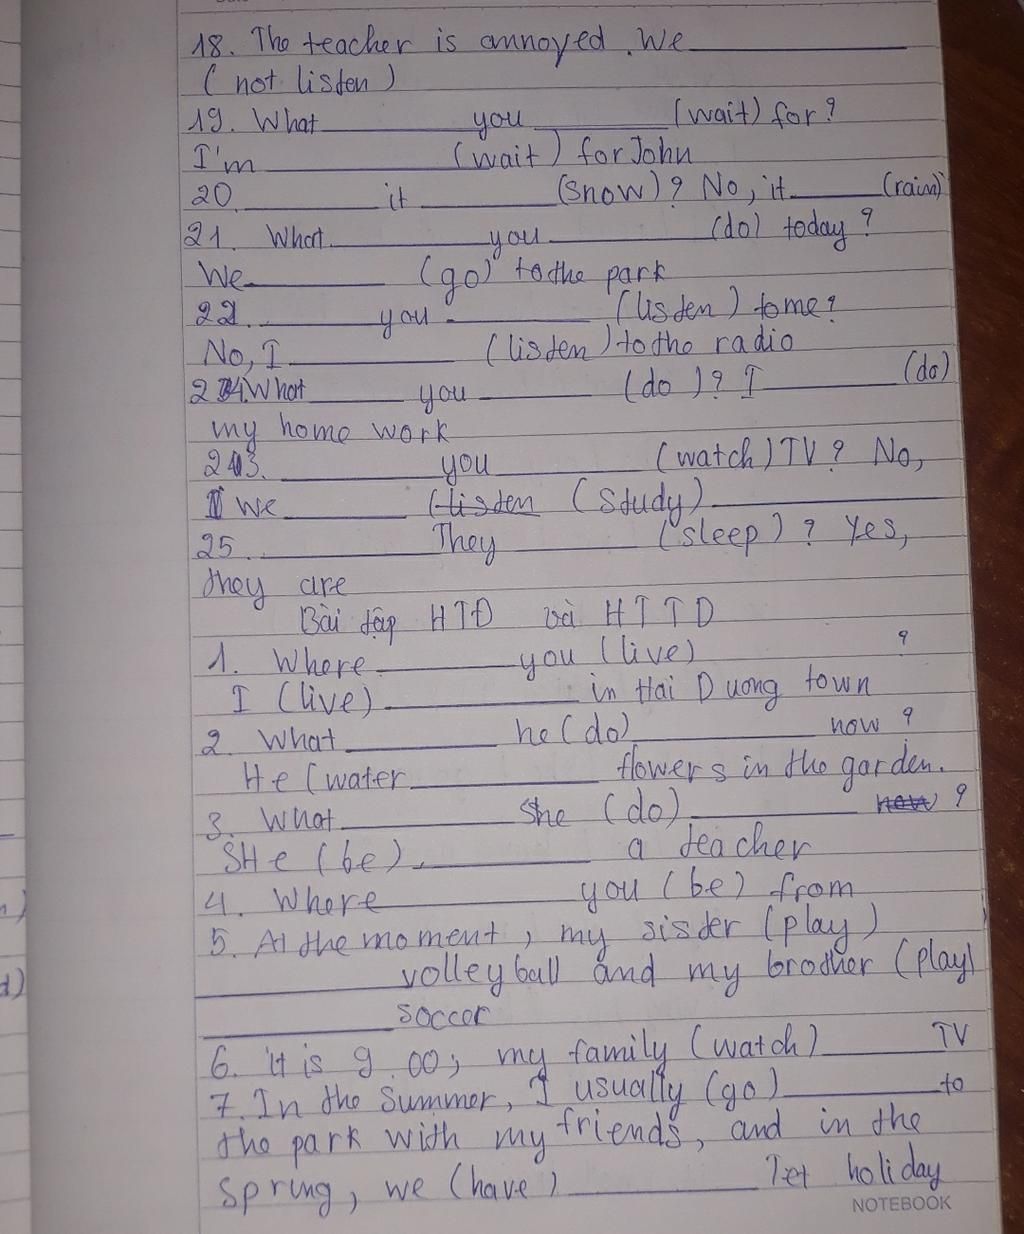 18. The teacher is annoyed. We__________
( not listen )
19. What__________you________(wait) for?
I'm__________(wait) for John
20.________it________(snow)? No, it_____(rain)
21. What__________you__________(do) today?
We________(go) to the park
22.________you________(listen) to me?
No, I__________(listen) to the radio
24. What______you_______(do)? I________(do)
my home work
23.__________you__________(watch) TV? No,
We_______(study)__________
25.__________They__________(sleep)? Yes,
they are
Bài tập HTĐ và HTTD
1. Where________you (live) ?
I (live)__________in Hai Duong town
2. What________he (do)__________now?
He (water__________flowers in the garden.
3. What__________She (do)__________now?
SHe (be).__________a teacher
4. Where__________you (be) from
5. At the moment, my sister (play)
__________volleyball and my brother (play)
__________soccer
6. it is 9.00; my family (watch)________TV
7. In the Summer, I usually (go)________to
the park with my friends, and in the
spring, we (have)__________Tet holiday
NOTEBOOK